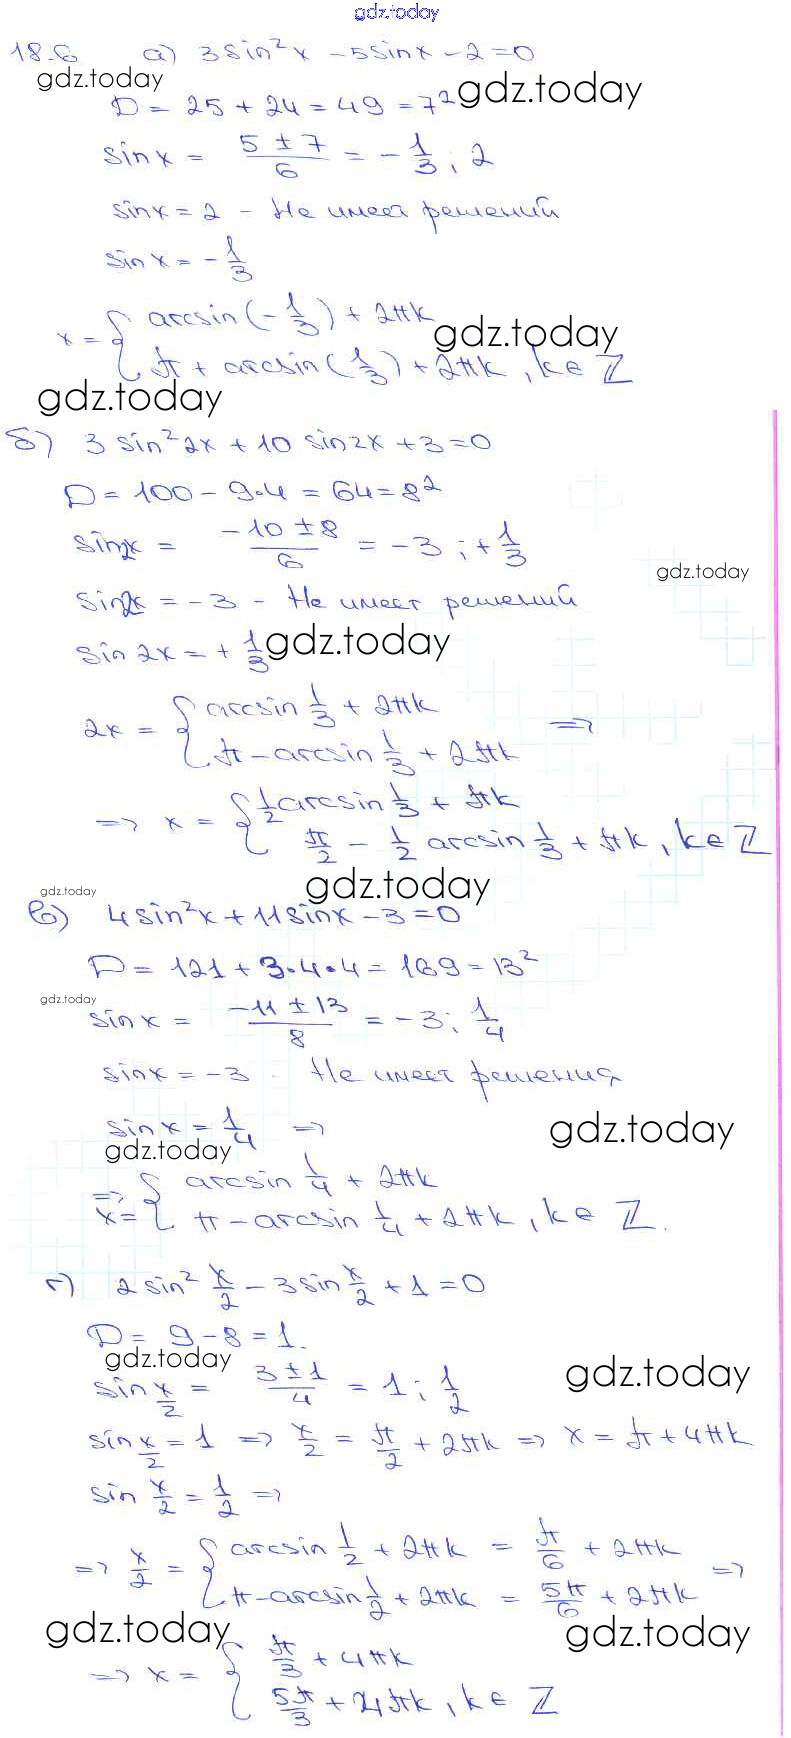 gdz.today
18.6 а) 3sin²x - 5sinx - 2 = 0
gdz.today
D = 25 + 24 = 49 = 7² gdz.today
sinx = (5 ± 7)/6 = -1/3 ; 2
sinx = 2 - Не имеет решений
sinx = -1/3
x = { arcsin(-1/3) + 2πk
gdz.today
π + arcsin(1/3) + 2πk, k∈Z
gdz.today
б) 3 sin²2x + 10 sin2x + 3 = 0
D = 100 - 9·4 = 64 = 8²
sin2x = (-10 ± 8)/6 = -3 ; +1/3
gdz.today
sin2x = -3 - Не имеет решений
sin2x = +1/3 gdz.today
2x = { arcsin 1/3 + 2πk
π - arcsin 1/3 + 2πk =>
=> x = { 1/2 arcsin 1/3 + πk
π/2 - 1/2 arcsin 1/3 + πk, k∈Z
gdz.today gdz.today
в) 4sin²x + 11sinx - 3 = 0
D = 121 + 3·4·4 = 169 = 13²
gdz.today
sinx = (-11 ± 13)/8 = -3 ; 1/4
sinx = -3 - Не имеет решения
sinx = 1/4 => gdz.today
gdz.today
=> x = { arcsin 1/4 + 2πk
π - arcsin 1/4 + 2πk, k∈Z.
г) 2sin² x/2 - 3sin x/2 + 1 = 0
D = 9 - 8 = 1.
gdz.today gdz.today
sin x/2 = (3 ± 1)/4 = 1 ; 1/2
sin x/2 = 1 => x/2 = π/2 + 2πk => x = π + 4πk
sin x/2 = 1/2 =>
=> x/2 = { arcsin 1/2 + 2πk = π/6 + 2πk
π - arcsin 1/2 + 2πk = 5π/6 + 2πk =>
gdz.today gdz.today
=> x = { π/3 + 4πk
5π/3 + 4πk, k∈Z